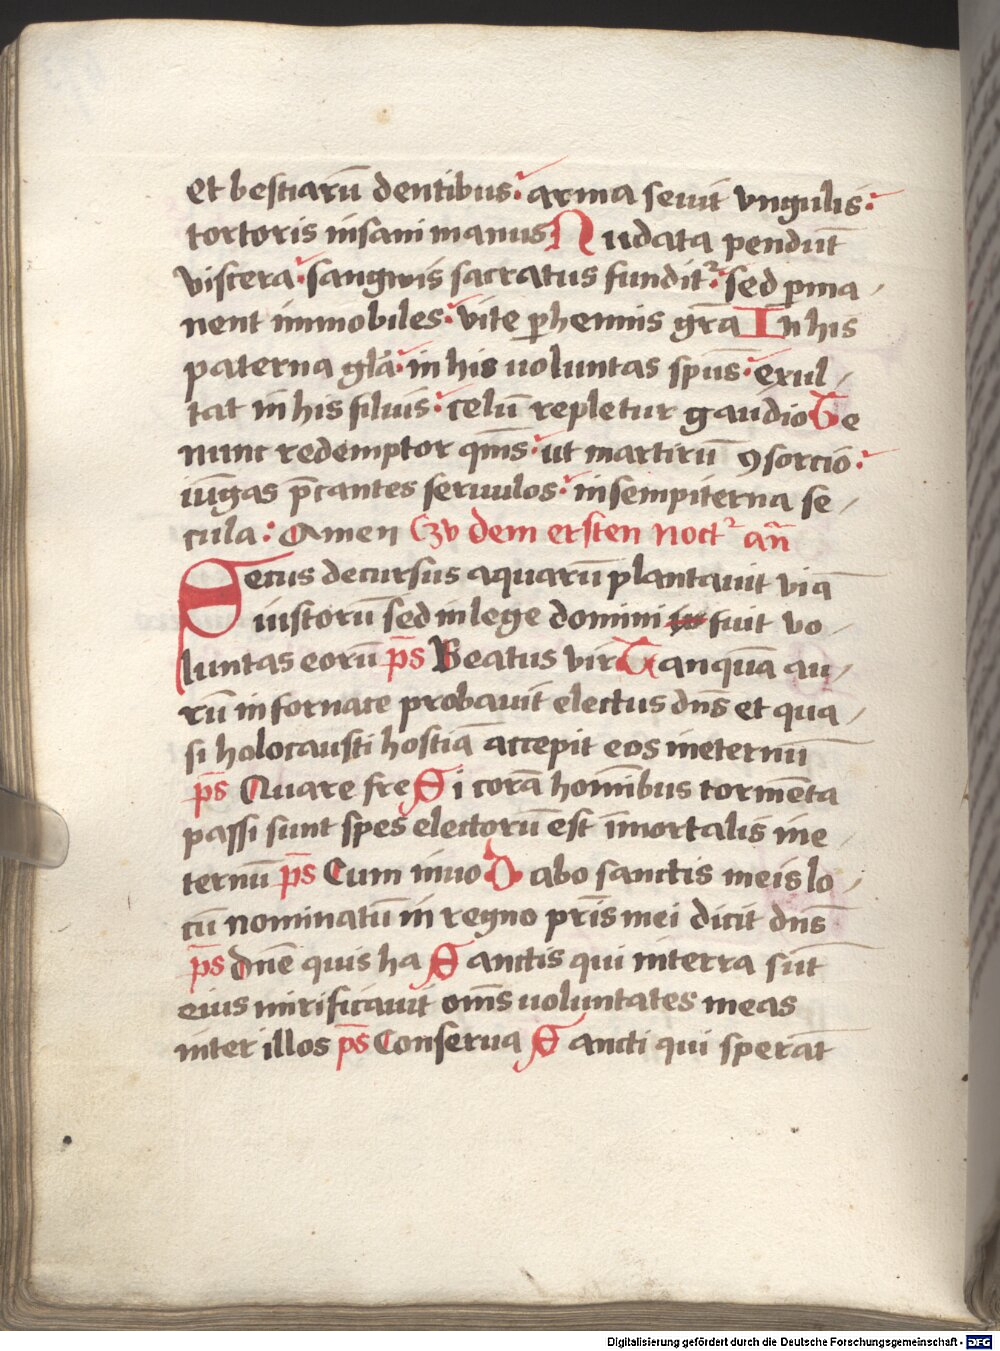 et bestiarū dentibus: arma seuit vngulis:
tortoris insani manus Nudata pendūt
viscera: sangwis sacratus fundit᷑: sed ꝑma
nent immobiles: vite ꝑhennis gr̄a In his
paterna gl̄a: in his uoluntas sp̄us: exul
tat in his filius: celū repletur gaudio Te
nunc redemptor qm̄s: ut martirū ꝯsorcio:
iūgas p̄cantes seruulos: in sempiterna se
cula: Amen Czv dem ersten Noct᷑ an̄
Secus decursus aquarū plantauit viā
iustorū sed in lege domini fuit vo
luntas eorū p̄s Beatus vir Tanquā au
rū in fornace probauit electus dn̄s et qua
si holocausti hostiā accepit eos ineternū
p̄s Quare fre Si corā hom̄ibus tormēta
passi sunt spes electorū est īmortalis ine
ternū p̄s Cum inuo Dabo sanctis meis lo
cū nominatū in regno pr̄is mei dicit dn̄s
p̄s Dn̄e quis ha Sanctis qui in terra sūt
eius mirificauit om̄s uoluntates meas
inter illos p̄s Conserua Sancti qui sperāt
Digitalisierung gefördert durch die Deutsche Forschungsgemeinschaft - DFG